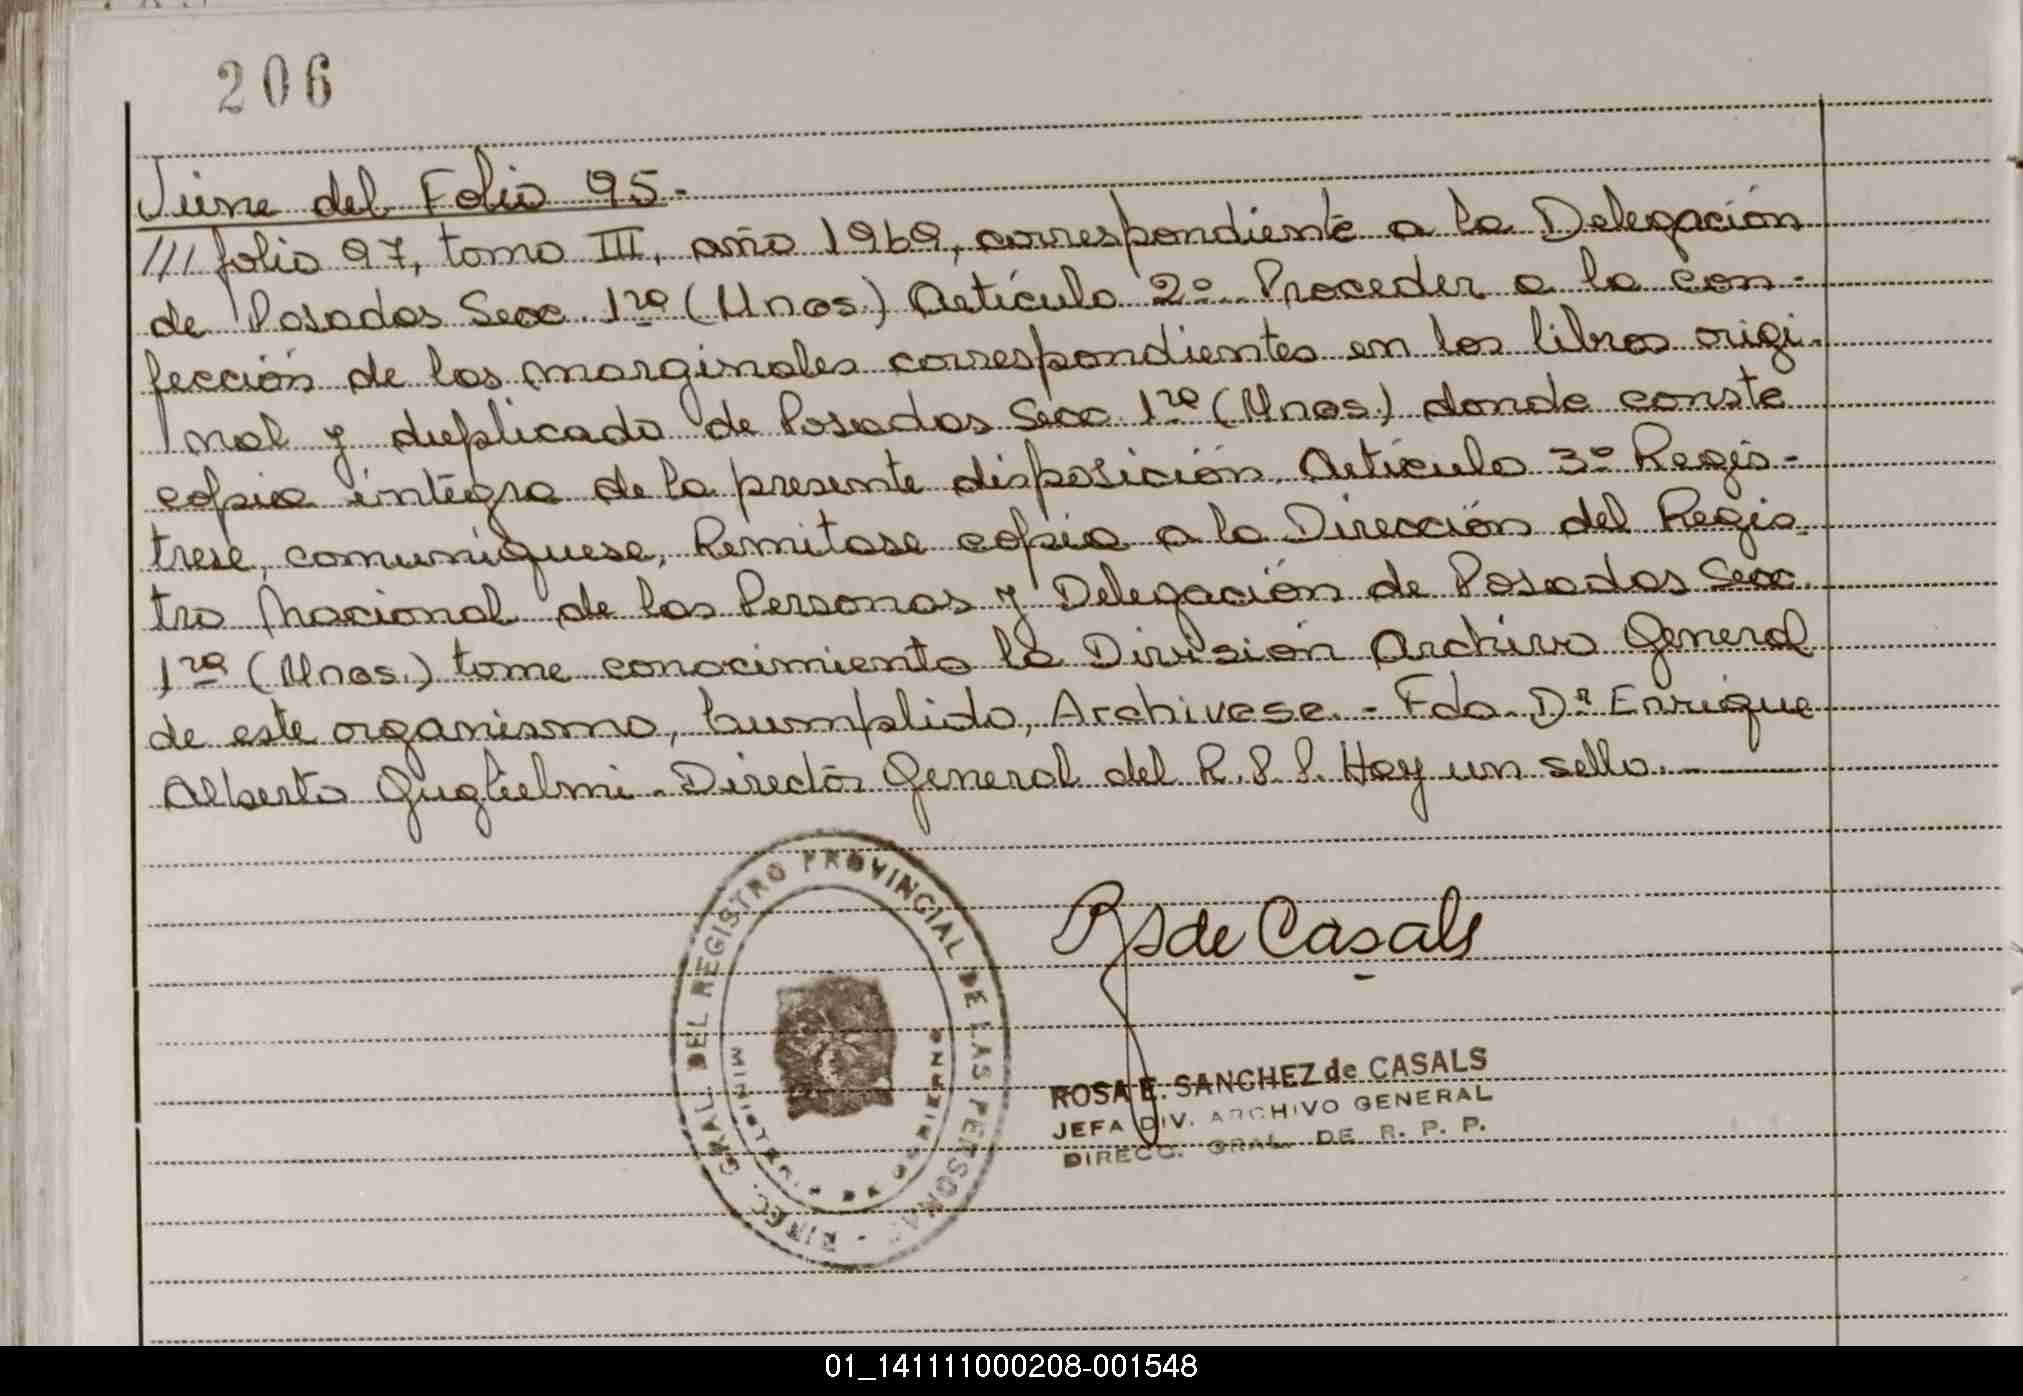 206
Viene del Folio 95.-
/// folio 97, tomo III, año 1969, correspondiente a la Delegación
de Posadas Secc. 1ra (Mnes.) Artículo 2º Proceder a la con-
fección de las marginales correspondientes en los libros origi-
nal y duplicado de Posadas Secc 1ra (Mnes.) donde conste
copia íntegra de la presente disposición. Artículo 3º Regis-
trese, comuníquese, Remitase copia a la Dirección del Regis-
tro Nacional de las Personas y Delegación de Posadas Secc.
1ra (Mnes.) tome conocimiento la División Archivo General
de este organismo, Cumplido, Archivese.- Fdo. Dr Enrique
Alberto Guglielmi. Director General del R.P.P. Hay un sello.
DIREC. GRAL. DEL REGISTRO PROVINCIAL DE LAS PERSONAS -
MINISTERIO DE GOBIERNO
RS de Casals
ROSA E. SANCHEZ de CASALS
JEFA DIV. ARCHIVO GENERAL
DIRECC. GRAL. DE R. P. P.
01_141111000208-001548